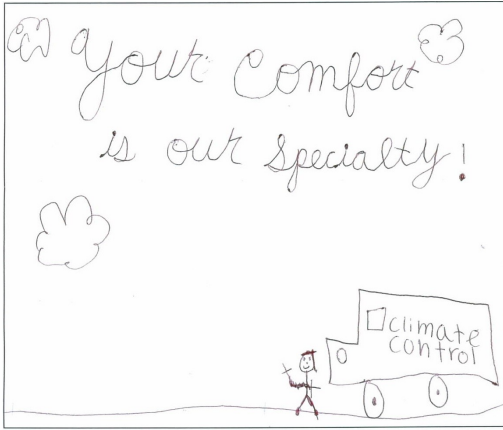 Your Comfort
is our Specialty!
climate
control